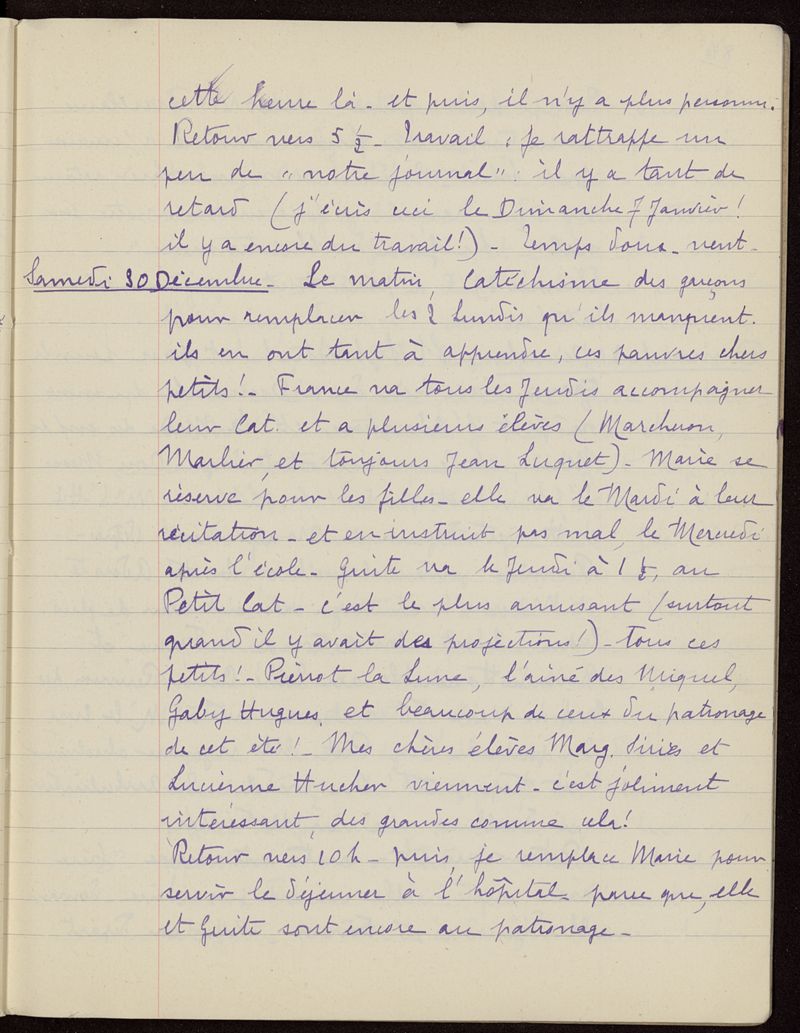 cette heure là - et puis, il n'y a plus personne.
Retour vers 5 1/2 - Travail : je rattrappe un
peu de "notre journal" : il y a tant de
retard (j'écris ceci le Dimanche 7 Janvier !
il y a encore du travail !) - Temps doux - vent -
Samedi 30 Décembre - Le matin, Catéchisme des garçons
pour remplacer les 2 Lundis qu'ils manquent.
ils en ont tant à apprendre, ces pauvres chers
petits ! - France va tous les Jeudis accompagner
leur Cat. et a plusieurs élèves (Marcheron,
Marlier, et toujours Jean Luquet) - Marie se
réserve pour les filles - elle va le Mardi à leur
récitation - et en instruit pas mal, le Mercredi
après l'école - Guite va le Jeudi à 1 1/2, au
Petit Cat - c'est le plus amusant (surtout
quand il y avait des projections !) - tous ces
petits ! - Pierrot la Lune, l'aîné des Miquel,
Gaby Hugues, et beaucoup de ceux du patronage
de cet été ! - Mes chères élèves Marg. et
Lucienne Hucher viennent - c'est joliment
intéressant, des grandes comme cela !
Retour vers 10 h - puis, je remplace Marie pour
servir le déjeuner à l'hôpital - parce que, elle
et Guite sont encore au patronage -